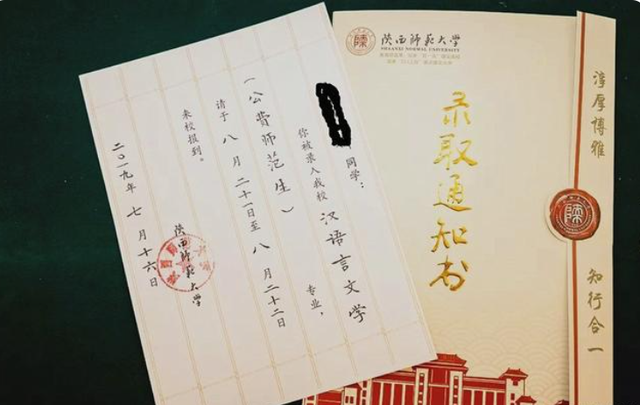 同学:
你被录入我校汉语言文学专业,
(公费师范生)
请于八月二十一日至八月二十二日
来校报到。
陕西师范大学
二〇一九年七月十六日
陕西师范大学
SHAANXI NORMAL UNIVERSITY
录取通知书
淳厚博雅
知行合一